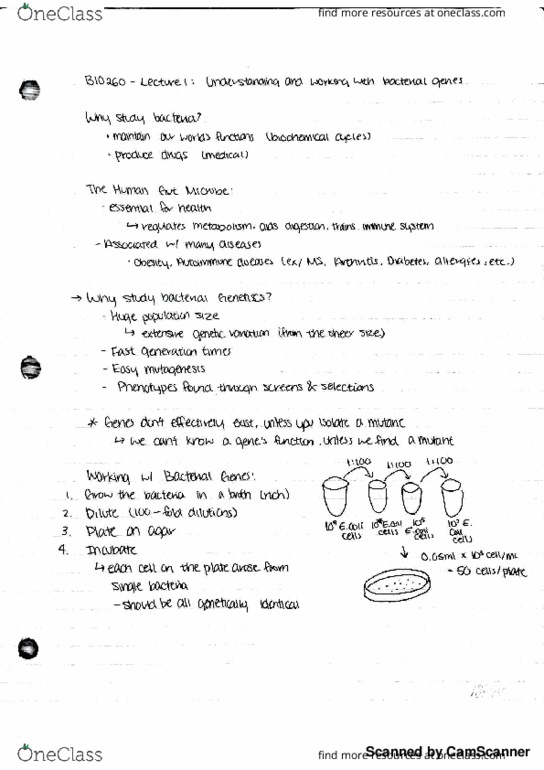 OneClass
find more resources at oneclass.com
BIO260 - Lecture 1: Understanding and working with bacterial genes.
Why study bacteria?
• maintain our world's functions (biochemical cycles)
• produce drugs (medical)
The Human Gut Microbe:
- essential for health
↳ regulates metabolism, aids digestion, trains immune system
- Associated w/ many diseases
• Obesity, Autoimmune diseases (ex/ MS, Arthritis, Diabetes, allergies, etc.)
→ Why study bacterial Genetics?
- Huge population size
↳ extensive genetic variation (from the sheer size)
- Fast generation times
- Easy mutagenesis
- Phenotypes found through screens & selections
* Genes don't effectively exist, unless you isolate a mutant
↳ we can't know a gene's function, unless we find a mutant
Working w/ Bacterial Genes:
1. Grow the bacteria in a broth (rich)
2. Dilute (100-fold dilutions)
3. Plate on agar
4. Incubate
↳ each cell on the plate arose from
single bacteria
- should be all genetically identical
1:100 1:100 1:100
E.coli cells
E.coli cells
E.coli cells
E. coli cells
0.05ml x 10³ cell/mL
= 50 cells/plate
OneClass
find more resources at oneclass.com
Scanned by CamScanner